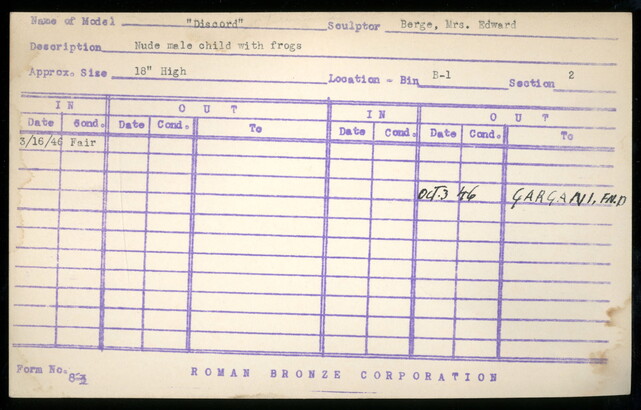 Name of Model "Discord" Sculptor Berge, Mrs. Edward
Description Nude male child with frogs
Approx. Size 18" High Location - Bin B-1 Section 2
IN OUT IN OUT
Date Cond. Date Cond. To Date Cond. Date Cond. To
3/16/46 Fair
Oct. 3 46 GARGANI, FND
Form No. ROMAN BRONZE CORPORATION